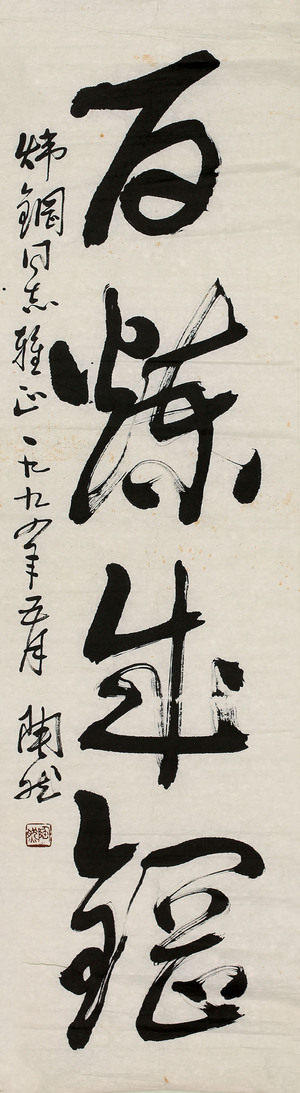 百炼成鋼
炜鋼同志雅正 一九九四年五月 陶然